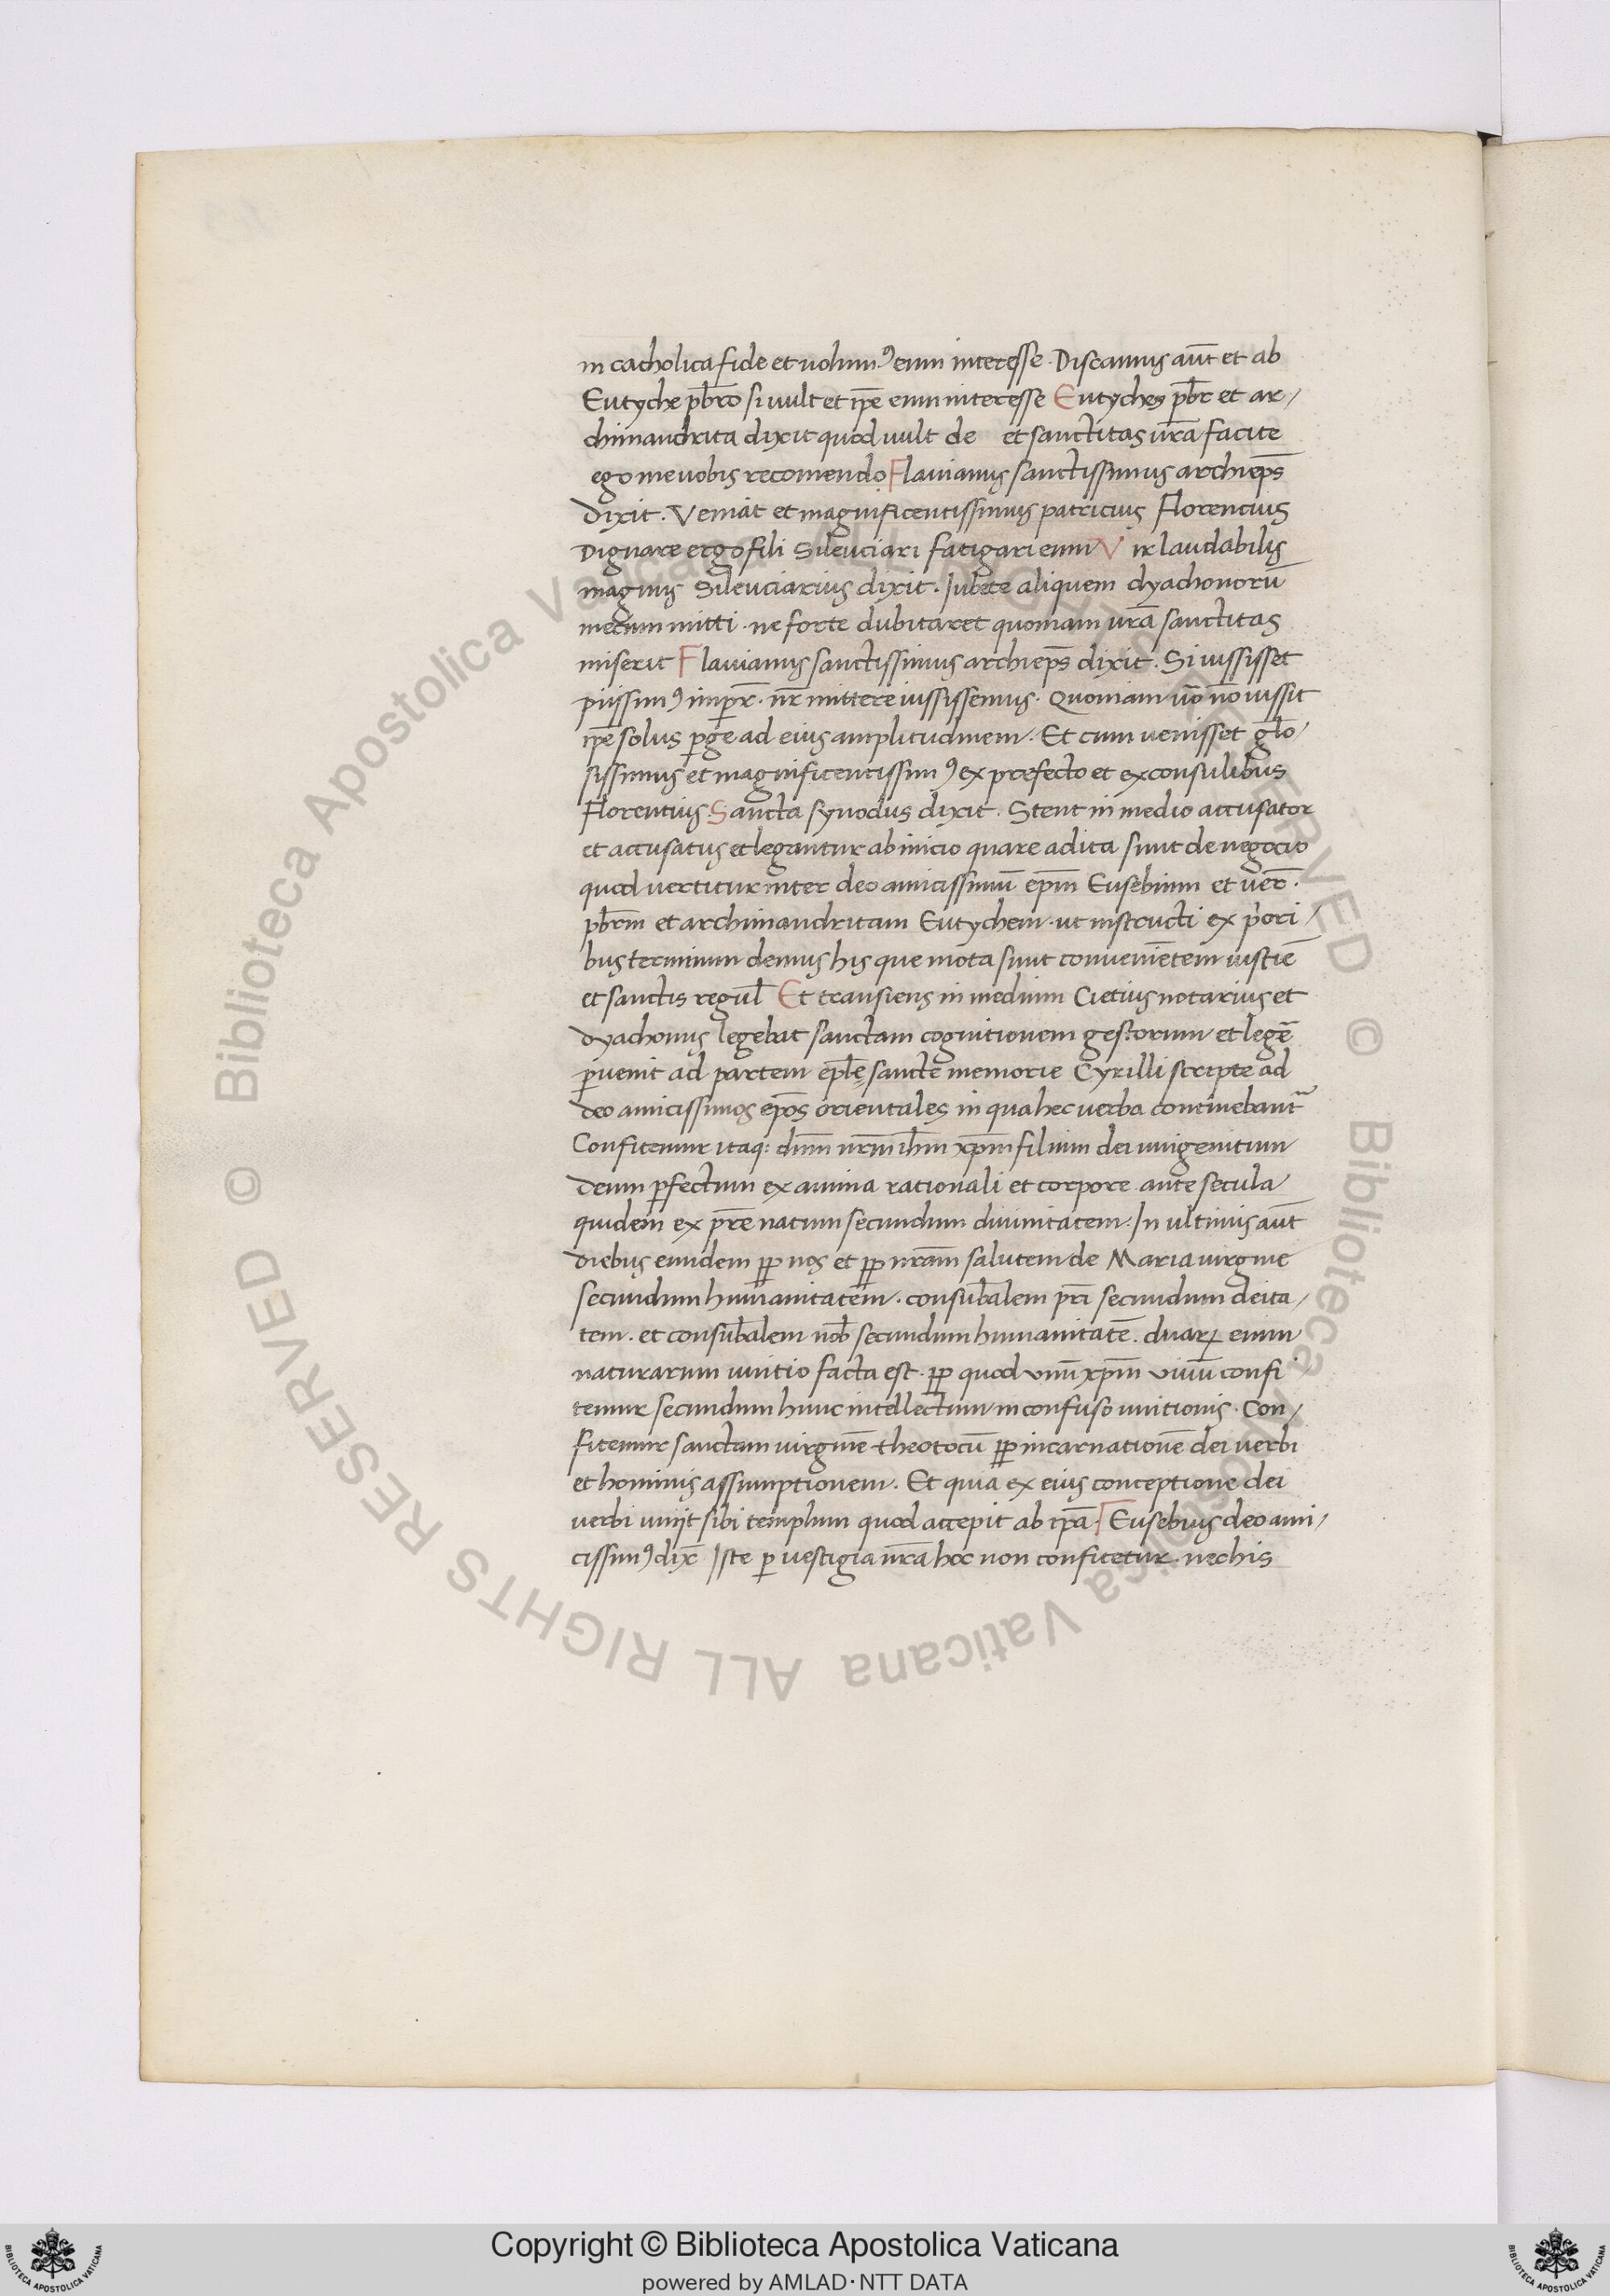 in catholica fide et volumꝰ eum interesse. Discamus aūt et ab
Eutyche p̄bro si uult et ip̄e eum interesse Eutyches p̄br et ar/
chimandrita dixit quod uult de et sanctitas ūra facite
ego me uobis recomendo Flauianus sanctissimus archiep̄s
dixit. Veniat et magnificentissimus patricius Florencius
Dignare ergo fili Silenciari fatigari eum Vir laudabilis
magnus Silenciarius dixit. Jubete aliquem dyachonorū
mecum mitti. ne forte dubitaret quoniam ūra sanctitas
miserit Flauianus sanctissimus archiep̄s dixit. Si iussisset
piissimꝰ imp̄r. nr̄ mittere iussissemus. Quoniam ūo nō iussit
ip̄e solus ꝑge ad eius amplitudinem. Et cum uenisset glō/
sissimus et magnificentissimꝰ ex prefecto et exconsulibus
Florentius Sancta synodus dixit. Stent in medio accusator
et accusatus et legantur ab inicio quare adita sunt de negocio
quod vertitur inter deo amicissimū ep̄m Eusebium et uer̄.
p̄brm et archimandritam Eutychem. ut instructi ex p̀ori/
bus terminum demus his que mota sunt conueniētem iusticiē
et sanctis regul̄ Et transiens in medium Cietius notarius et
dyachonus legebat sanctam cognitionem gestorum et legē
ꝑuenit ad partem ep̄le sancte memorie Cyrilli scripte ad
deo amicissimos ep̄os orientales in qua hec uerba continebant᷑
Confitemur itaq: dn̄m nr̄m ih̄m xp̄m filium dei unigenitum
deum ꝑfectum ex anima rationali et corpore ante secula
quidem ex p̄re natum secundum diuinitatem. In ultimis aūt
diebus eundem ꝓꝑ nos et ꝓꝑ nr̄am salutem de Maria uirgine
secundum humanitatem. consub̄alem p̄ri secundum deita/
tem. et consub̄alem nob̄ secundum humanitatē. duaꝝ enim
naturarum unitio facta est. ꝓꝑ quod vnū xp̄m viuū confi
temur secundum hunc intellectum inconfuso unitionis. Con/
fitemur sanctam uirginē theotocū ꝓꝑ incarnationē dei verbi
et hominis assumptionem. Et quia ex eius conceptione dei
uerbi uniit sibi templum quod accepit ab ip̄a. Eusebius deo ami/
cissimꝰ dix̄ Iste ꝑ uestigia nr̄a hoc non confitetur. nec his
Copyright © Biblioteca Apostolica Vaticana
powered by AMLAD·NTT DATA
© Biblioteca Apostolica Vaticana ALL RIGHTS RESERVED © Biblioteca Apostolica Vaticana ALL RIGHTS RESERVED
BIBLIOTECA APOSTOLICA VATICANA
BIBLIOTECA APOSTOLICA VATICANA